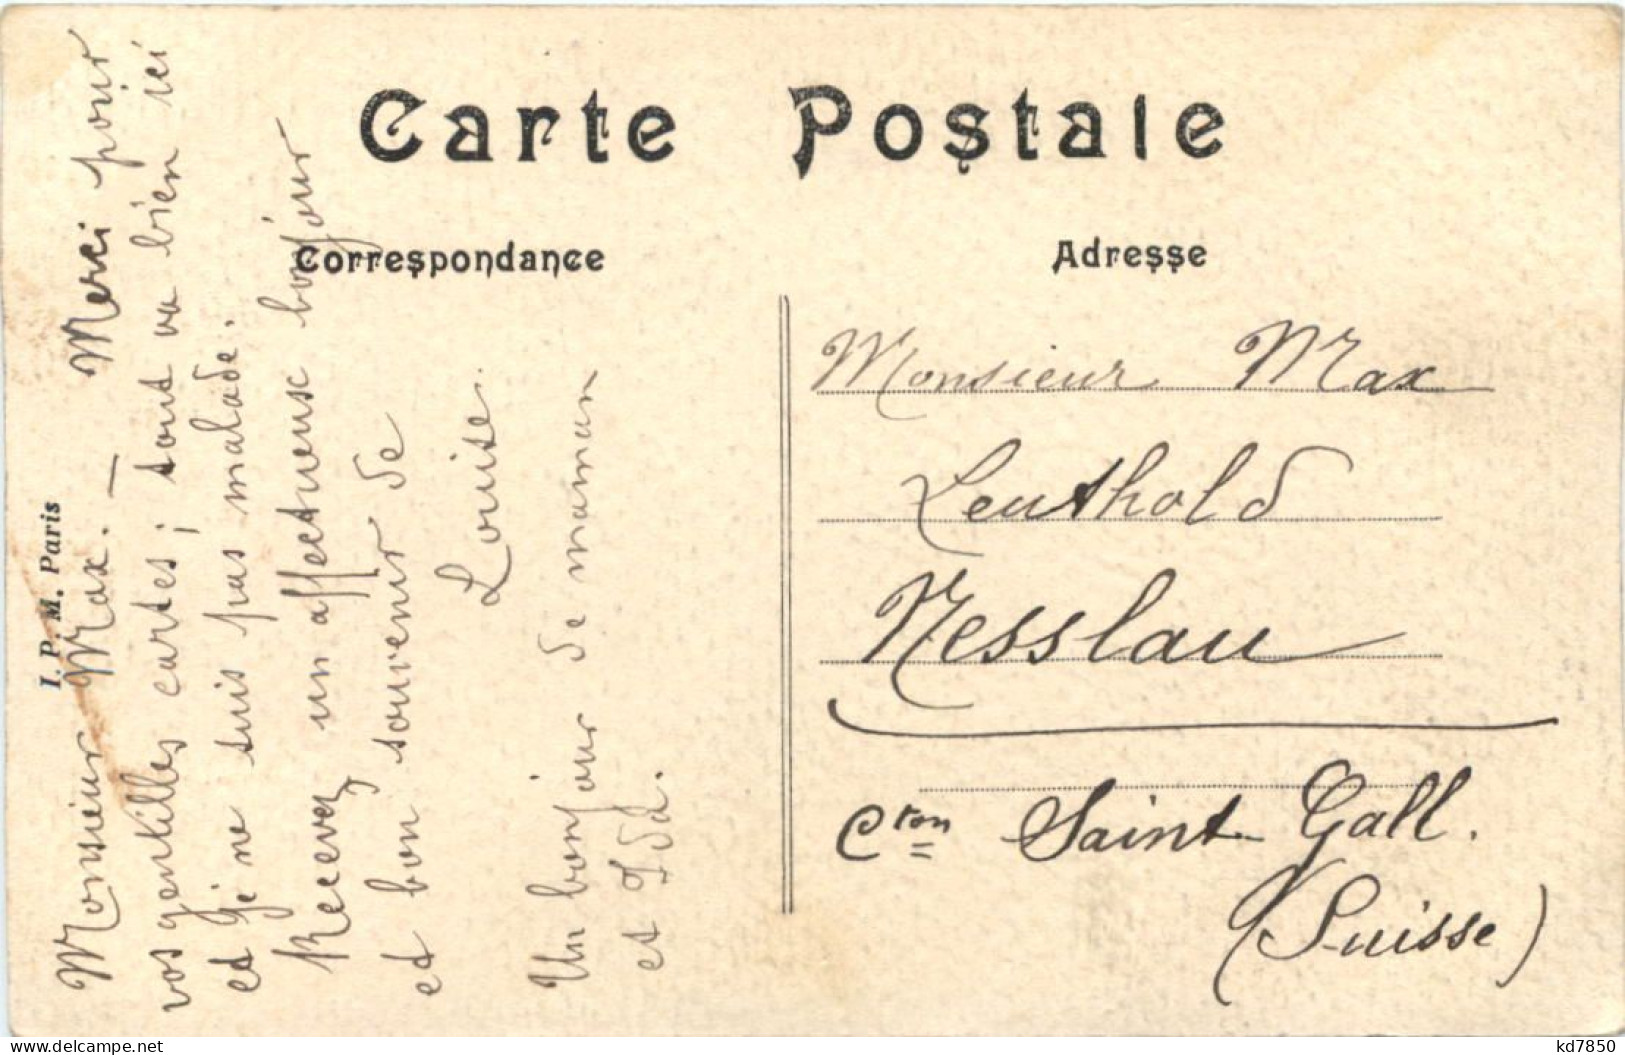 Carte Postale
Correspondance
Adresse
I. P. M. Paris
Monsieur Max. — Merci pour
vos gentilles cartes ; tout va bien ici
et je ne suis pas malade.
Recevez un affectueux bonjour
et bon souvenir de
Louise.
Un bonjour de maman
et Ida.
Monsieur Max
Leuthold
Nesslau
Cton Saint Gall.
(Suisse)
www.delcampe.net
kd7850